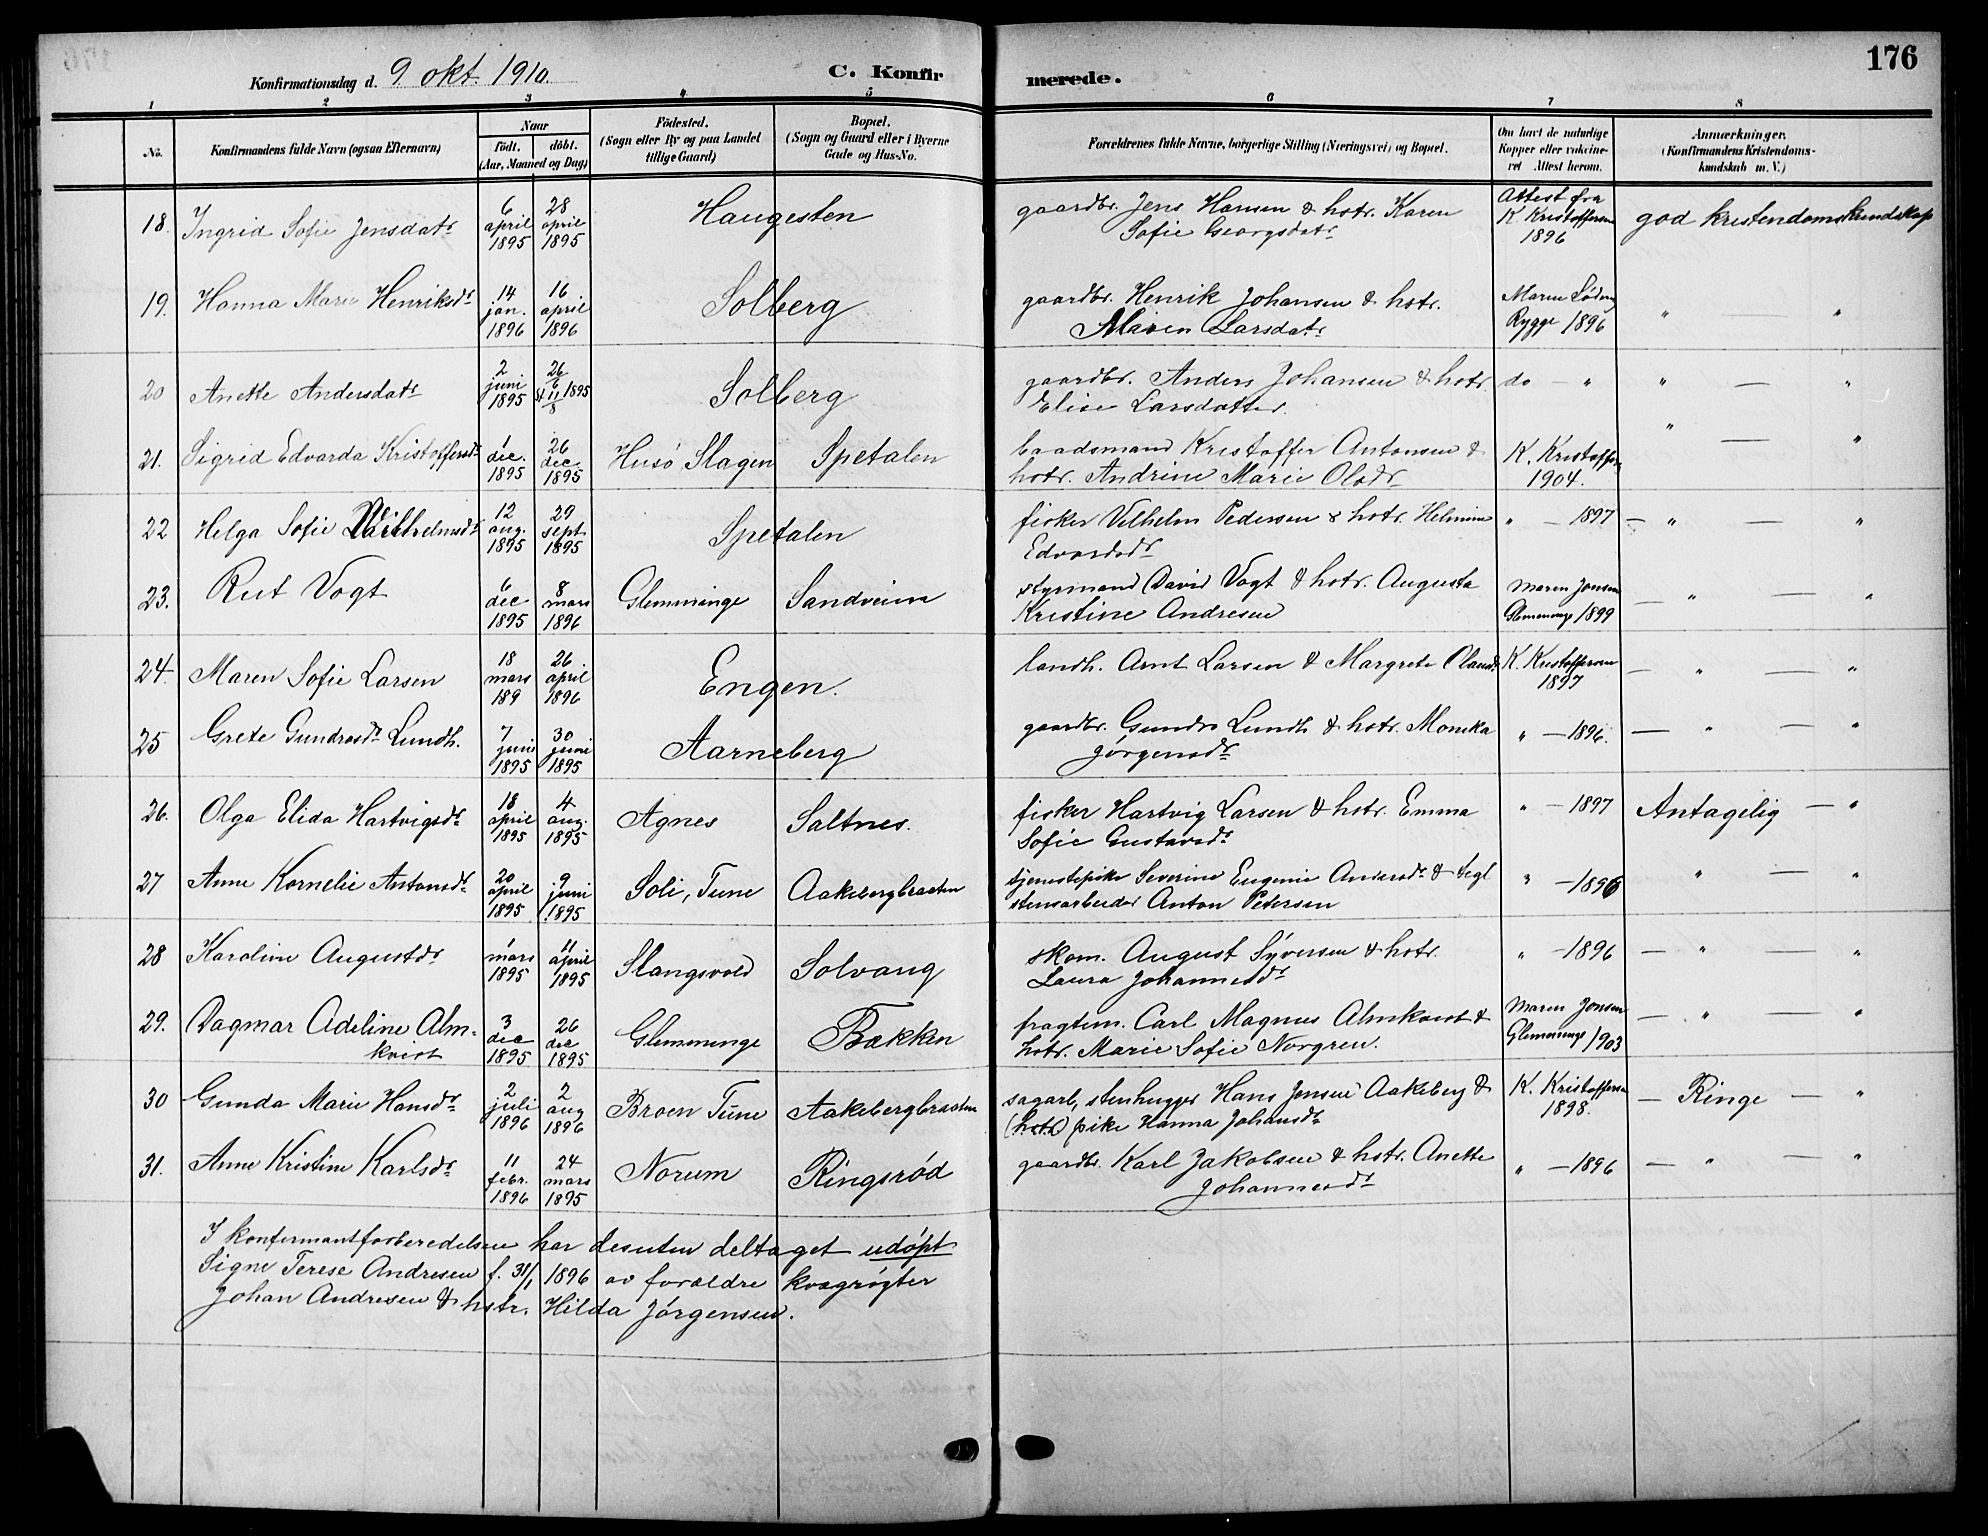 176
Konfirmationsdag d. 9. okt. 1910.
C. Konfirmerede.
1 2 3 4 5 6 7 8
No.
Konfirmandens fulde Navn (ogsaa Efternavn)
Naar
födt. döbt.
(Aar, Maaned og Dag)
Födested.
(Sogn eller By og paa Landet
tillige Gaard)
Bopæl.
(Sogn og Gaard eller i Byerne
Gade og Hus-No.
Forældrenes fulde Navne, borgerlige Stilling (Næringsvei) og Bopæl.
Om havt de naturlige
Kopper eller vakcine-
ret Attest herom.
Anmærkninger.
(Konfirmandens Kristendoms-
kundskab m. V.)
18. Ingrid Sofie Jensdatr 6 april 1895 28 april 1895 Haugesten gaardbr. Jens Hansen & hstr. Karen
Sofie Georgsdatr Attest fra K Kristoffersen 1896 god kristendomskundskap
19. Hanna Marie Henriksdr 14 jan. 1896 16 april 1896 Solberg gaardbr. Henrik Johansen & hstr.
Maren Larsdatr Maren Rygge 1896 " — "
20 Anette Andersdatr 2 juni 1895 26/6 & 11/8 1895 Solberg gaardbr. Anders Johansen & hstr.
Elise Larsdatter. do — " " — "
21. Sigrid Edvarda Kristoffersdr 1 dec. 1895 26 dec. 1895 Husö Slagen Spetalen baadsmand Kristoffer Antonsen &
hstr. Andrine Marie Olsdr K. Kristoffers 1904. " — "
22 Helga Sofie Vilhelmsdr 12 aug. 1895 29 sept 1895 Spetalen fisker Vilhelm Pedersen & hstr. Helmine
Edvardsdr " — 1897 — " — "
23. Rut Vogt 6 dec 1895 8 mars 1896 Glemminge Sandveien styrmand David Vogt & hstr. Augusta
Kristine Andresen Maren Jonsen Glemminge 1899 — " — "
24. Maren Sofie Larsen 18 mars 189 26 april 1896 Engen. landh. Arnt Larsen & Margrete Olausdr K. Kristoffersen 1897 — " — "
25 Grete Gundrosdr Lundh. 7 juni 1895 30 juni 1895 Aarneberg gaardbr. Gundro Lundh & hstr. Monika
Jörgensdr " — 1896. — " — "
26. Olga Elida Hartvigsdr 18 april 1895 4 aug. 1895 Agnes Saltnes. fisker Hartvig Larsen & hstr. Emma
Sofie Gustavsdr " — 1897 Antagelig — "
27 Anne Kornelie Antonsdr 20 april 1895 9 juni 1895 Soli, Tune Aakebergbraaten tjenestepike Severine Eugenie Andersdr & tegl
stensarbeider Anton Petersen " — 1896 " — "
28 Karoline Augustdr 1 mars 1895 11 april 1895 Slangsvold Solvang skom. August Syversen & hstr.
Laura Johannesdr " — 1896 — " — "
29. Dagmar Adeline Alm-
kvist 3 dec 1895 26 dec 1895 Glemminge Bakken fragtem. Carl Magnus Almkvist &
hstr. Marie Sofie Norgren. Maren Jonsen Glemminge 1903 — " — "
30 Gunda Marie Hansdr 2 juli 1896 2 aug 1896 Broen Tune Aakebergbraaten sagarb, stenhugger Hans Jensen Aakeberg &
(hstr.) pike Hanna Johansdr K. Kristoffersen 1898. — Ringe — "
31. Anne Kristine Karlsdr 11 febr. 1896 24 mars 1895 Norum Ringsröd gaardbr. Karl Jakobsen & hstr. Anette
Johannesdr " — 1896 — " — "
I konfirmantforberedelsen har desuten deltaget udöpt
Signe Terese Andresen f. 31/1 1896 av foræeldre kvægrögter
Johan Andresen & hstr. Hilda Jörgensen.